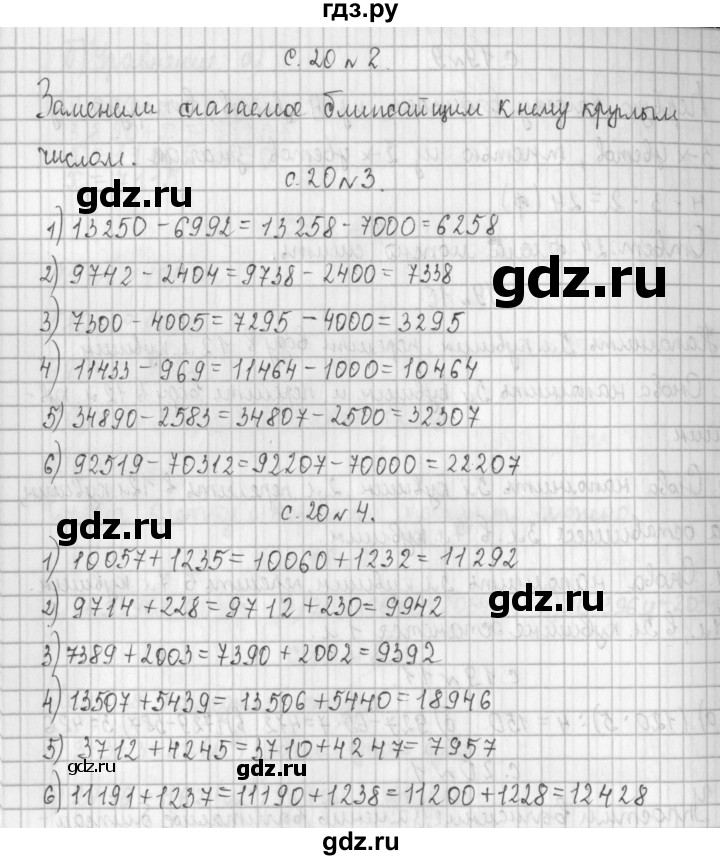 гдз.ру
с. 20 № 2.
Заменили слагаемое ближайщим к нему круглым
числом.
gdz.ru
с. 20 № 3.
1) 13250 - 6992 = 13258 - 7000 = 6258
2) 9742 - 2404 = 9738 - 2400 = 7338
gdz.ru
3) 7300 - 4005 = 7295 - 4000 = 3295
4) 11433 - 969 = 11464 - 1000 = 10464
5) 34890 - 2583 = 34807 - 2500 = 32307
6) 92519 - 70312 = 92207 - 70000 = 22207
с. 20 № 4.
gdz.ru
1) 10057 + 1235 = 10060 + 1232 = 11292
2) 9714 + 228 = 9712 + 230 = 9942
gdz.ru
3) 7389 + 2003 = 7390 + 2002 = 9392
4) 13507 + 5439 = 13506 + 5440 = 18946
5) 3712 + 4245 = 3710 + 4247 = 7957
gdz.ru
gdz.ru
6) 11191 + 1237 = 11190 + 1238 = 11200 + 1228 = 12428
gdz.ru